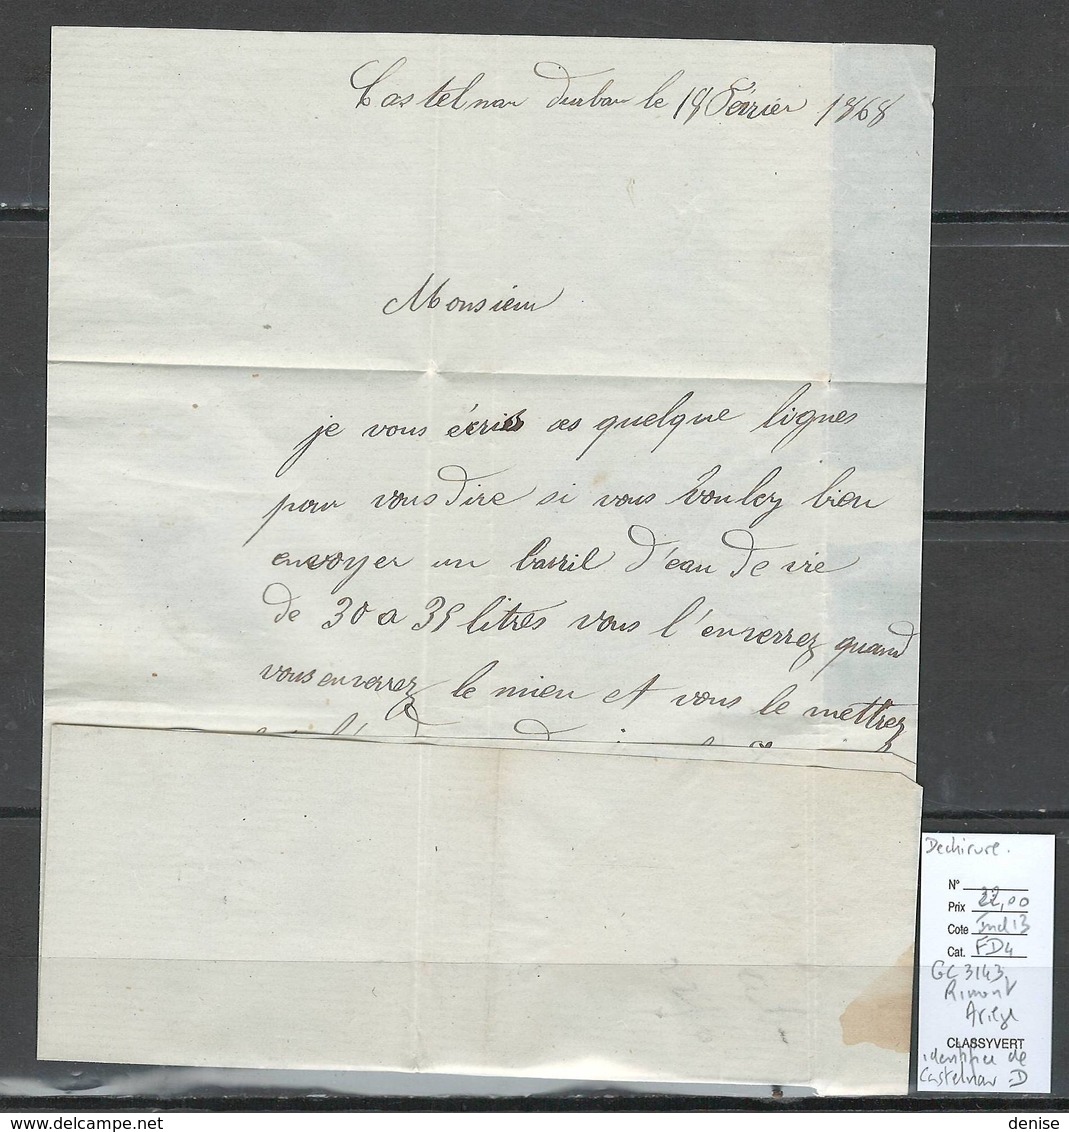 Castelnau durban le 18 Février 1868
Monsieur
je vous écris ces quelque lignes
pour vous dire si vous voulez bien
envoyer un barril d'eau de vie
de 30 a 35 litres vous l'enverrez quand
vous enverrez le mien et vous le mettrez
Dechirure.
N°
Prix 22,00
Cote Ind 13
Cat. FD4
GC 3143
Rimont
Ariège
CLASSYVERT
identifiée de
Castelnau D
denise